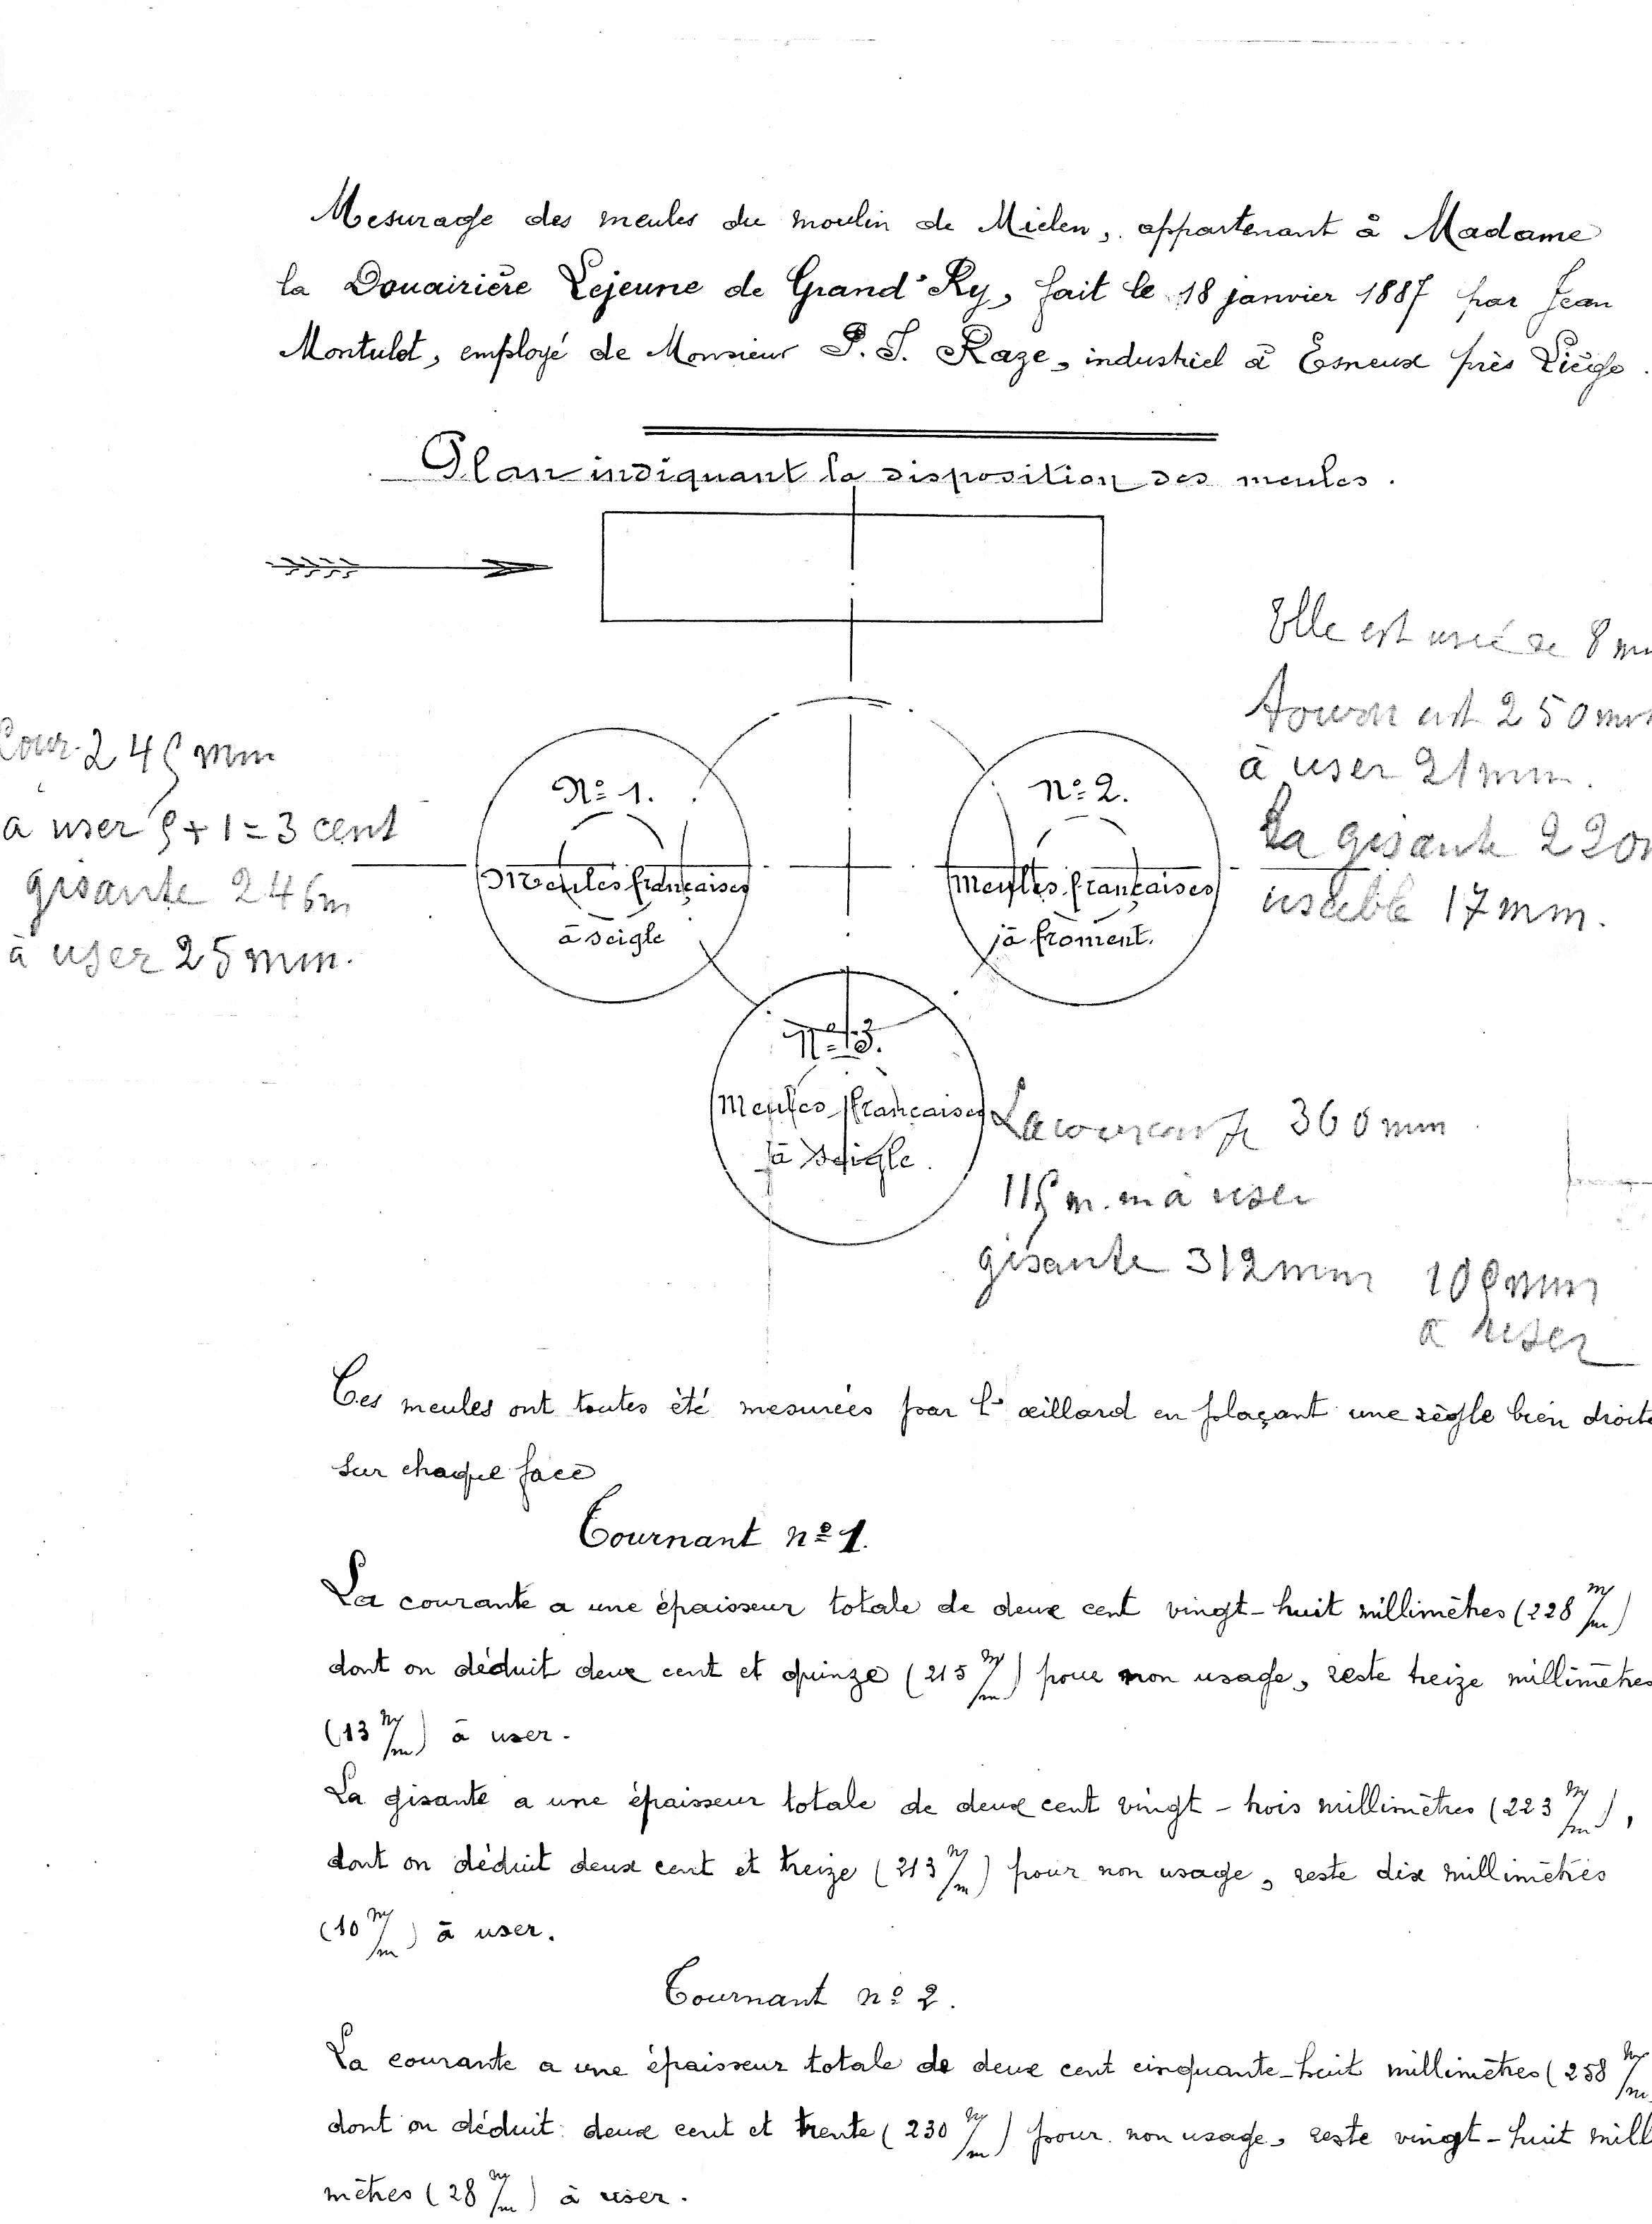 Mesurage des meules du moulin de Mielen, appartenant à Madame
la Douairière Lejeune de Grand'Ry, fait le 18 janvier 1887 par Jean
Montulet, employé de Monsieur P. J. Raze, industriel à Esneux près Liège.
Plan indiquant la disposition des meules.
Elle est usée de 8 mm
250 mm
à user 21 mm.
La gisante 220
usable 17 mm.
Cour. 245 mm
a user + 1 = 3 cent
gisante 246 m
à user 25 mm.
N° 1.
Meules françaises
à seigle
N° 2.
Meules françaises
à froment.
N° 3.
Meules françaises
à seigle.
La courante 360 mm
m.m a user
gisante 312 mm
mm
a user
Ces meules ont toutes été mesurées par l'œillard en plaçant une règle bien droite
sur chaque face
Tournant n° 1.
La courante a une épaisseur totale de deux cent vingt-huit millimètres (228 m/m)
dont on déduit deux cent et quinze (215 m/m) pour non usage, reste treize millimètres
(13 m/m) à user.
La gisante a une épaisseur totale de deux cent vingt-trois millimètres (223 m/m),
dont on déduit deux cent et treize (213 m/m) pour non usage, reste dix millimètres
(10 m/m) à user.
Tournant n° 2.
La courante a une épaisseur totale de deux cent cinquante-huit millimètres (258 m/m
dont on déduit deux cent et trente (230 m/m) pour non usage, reste vingt-huit milli
mètres (28 m/m) à user.